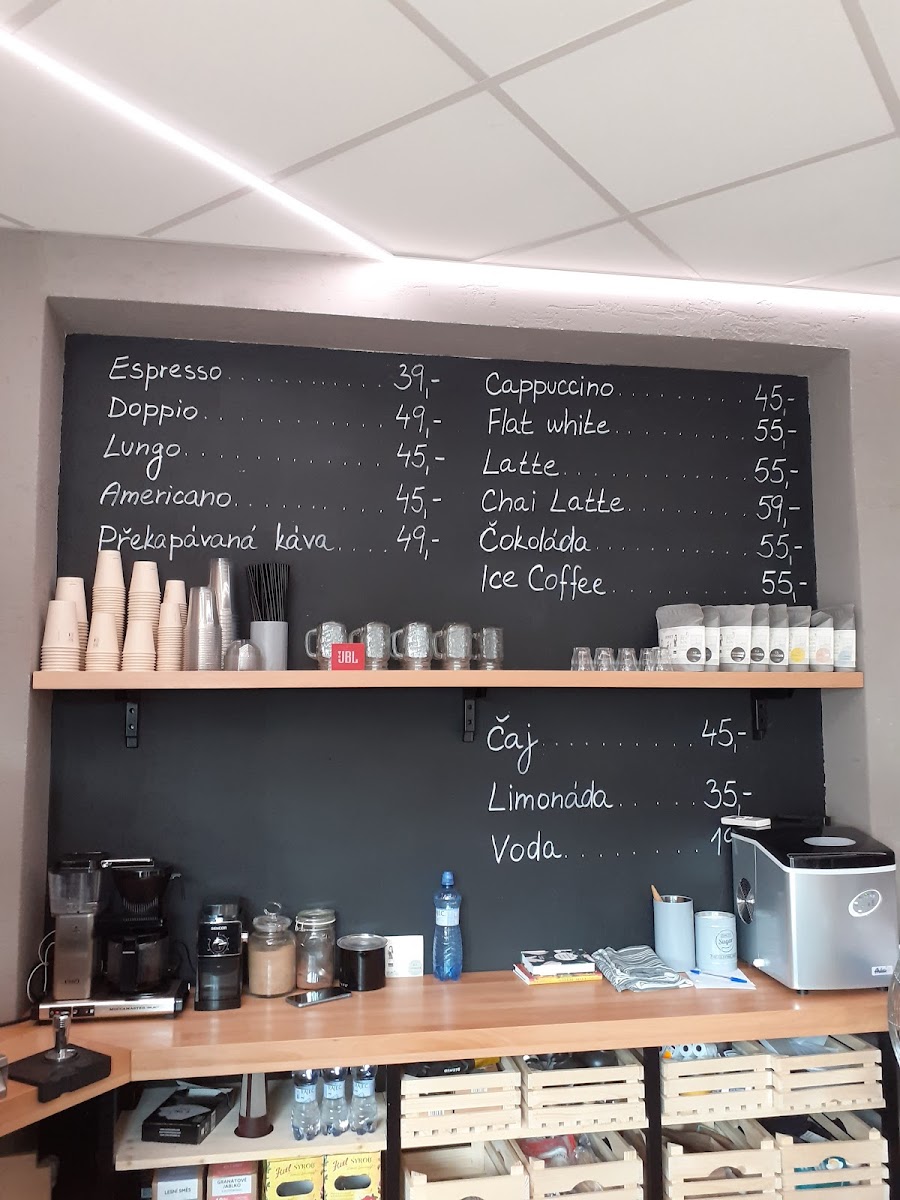 Espresso.............. 39,-
Doppio............... 49,-
Lungo................ 45,-
Americano............ 45,-
Překapávaná káva..... 49,-
Cappuccino........... 45,-
Flat white........... 55,-
Latte................ 55,-
Chai Latte........... 59,-
Čokoláda............. 55,-
Ice Coffee........... 55,-
JBL
Čaj.............. 45,-
Limonáda....... 35,-
Voda...........
SENCOR
Sugar
LESNÍ SMĚS
GRANÁTOVÉ JABLKO
SYROB
SYROB